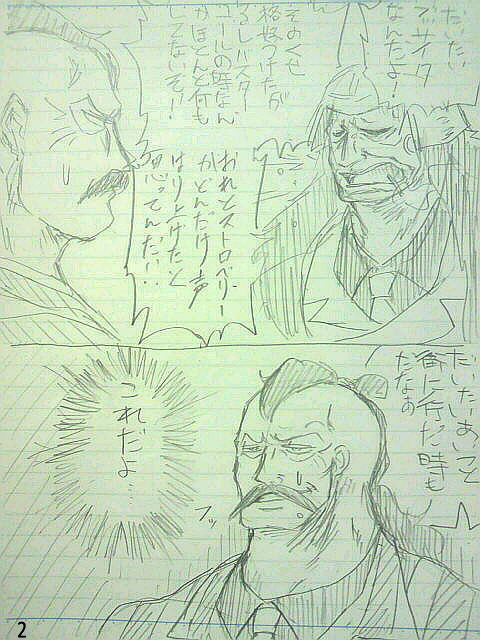 だいたい
アッサイタ
なんだよ!
そのくせ
格好つけたが
るしバスター
コールの時なん
かほとんど何も
してないぞ!!
おれとストロベリー
がどんだけ声
はり上げたと
思ってんだ!!..
だいたいあしこで
番に行った時も
だなあ
フッ
これだよ…
2